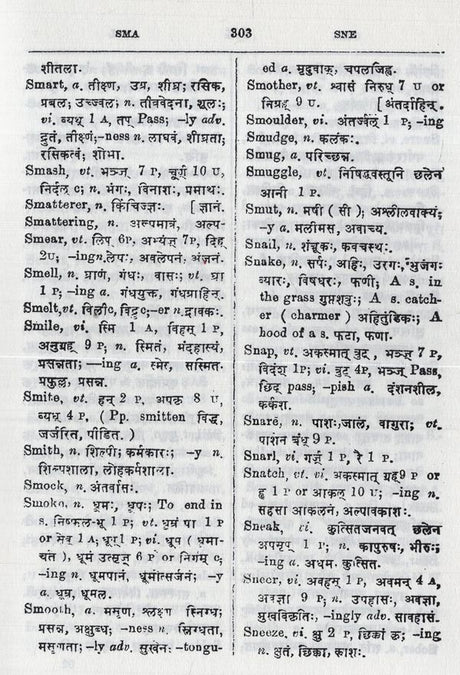 SMA 303 SNE
शीतला.
Smart, a. तीक्ष्ण, उग्र, शीघ्र; रसिक,
प्रबल; उज्ज्वल; n. तीव्रवेदना, शूलः;
vi. व्यथ् 1 A, तप् Pass; -ly adv.
द्रुतं, तीक्ष्णं; -ness n. लाघवं, शीघ्रता;
रसिकत्वं; शोभा.
Smash, vt. भञ्ज् 7 P, चूर्ण् 10 U,
निर्दल् c; n. भंगः, विनाशः, प्रमाथः.
Smatterer, n. किंचिज्ज्ञः. [ ज्ञानं.
Smattering, n. अल्पमात्रं, अल्प-
Smear, vt. लिप् 6P, अभ्यंज् 7P, दिह्
2U; -ing n. लेपः, अवलेपनं, अंजनं.
Smell, n. घ्राणं, गंधः, वासः; vt. घ्रा
1 P; -ing a. गंधयुक्त, गंधग्राहिन्.
Smelt, vt. विली c, विद्रु c; -er n. द्रावकः.
Smile, vi. स्मि 1 A, विहस् 1 P,
अनुग्रह् 9 P; n. स्मितं, मंदहास्यं,
प्रसन्नता; —ing a. स्मेर, सस्मित-
प्रफुल्ल, प्रसन्न.
Smite, vt. हन् 2 P, अपकृ 8 U,
व्यध् 4 P. ( Pp. smitten विद्ध,
जर्जरित, पीडित. )
Smith, n. शिल्पी; कर्मकारः; -y n.
शिल्पशाला, लोहकर्मशाला.
Smock, n. अंतर्वासः.
Smoke, n. धूमः, धूपः; To end in
s. निष्फली-भू 1 P; vt. धूम्रं पा 1 P
or सेव् 1 A; धूप् 1 P; vi. धूप ( धूमा-
यते ), धूमं उत्सृज् 6 P or निर्गम् c;
-ing n. धूमपानं, धूमोत्सर्जनं; -y
a. धूम्र, धूमल.
Smooth, a. मसृण, श्लक्ष्ण स्निग्ध;
प्रसन्न, अक्षुब्ध; -ness n. स्निग्धता,
मसृणता; -ly adv. सुखेन; -tongu-
ed a. मृदुवाक्, चपलजिह्व.
Smother, vt. श्वासं निरुध् 7 U or
निग्रह् 9 U. [ अंतर्दाहिन्.
Smoulder, vi. अंतर्ज्वल् 1 P; -ing
Smudge, n. कलंकः.
Smug, a. परिच्छन्न.
Smuggle, vt. निषिद्धवस्तूनि छलेन
आनी 1 P.
Smut, n. मषी ( सी ); अश्लीलवाक्यं;
-y a. मलीमस, अवाच्य.
Snail, n. शंबूकः, कवचस्थः.
Snake, n. सर्पः, अहिः, उरगः, भुजंगः
व्यालः, विषधरः, फणी; A s. in
the grass गुप्तशत्रुः; A s. catch-
er ( charmer ) अहितुंडिकः; A
hood of a s. फटा, फणा.
Snap, vt. अकस्मात् त्रुट्, भञ्ज् 7 P,
विदंश् 1P; vi. त्रुट् 4P, भञ्ज् Pass,
छिद् pass; -pish a. दंशनशील,
कर्कश.
Snare, n. पाशः, जालं, वागुरा; vt.
पाशेन बंध् 9 P.
Snarl, vi. गर्ज् 1 P, रै 1 P.
Snatch, vt. vi. अकस्मात् ग्रह् 9 P or
हृ 1 P or आकल् 10 U; -ing n.
सहसा आकलनं, अल्पावकाशः.
Sneak, vi. कुत्सितजनवत् छलेन
अपसृप् 1 P; n. कापुरुषः, भीरुः;
-ing a. अधम. कुत्सित.
Sneer, vi. अवहस् 1 P, अवमन् 4 A,
अवज्ञा 9 P; n. उपहासः, अवज्ञा,
मुखविकृतिः, -ingly adv. सावहासं.
Sneeze, vi. क्षु 2 P, छिक्कां कृ; -ing
n. क्षुतं, छिक्का, काशः.